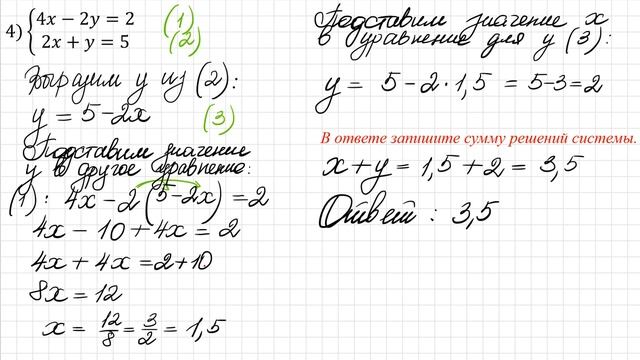 4) {4x − 2y = 2 (1)
2x + y = 5 (2)
Выразим y из (2):
y = 5−2x (3)
Подставим значение
y в другое уравнение:
(1): 4x−2(5−2x)=2
4x − 10 + 4x = 2
4x + 4x = 2+10
8x = 12
x = 12/8 = 3/2 = 1,5
Подставим значение x
в уравнение для y (3):
y = 5−2·1,5 = 5−3=2
В ответе запишите сумму решений системы.
x+y = 1,5+2 = 3,5
Ответ: 3,5